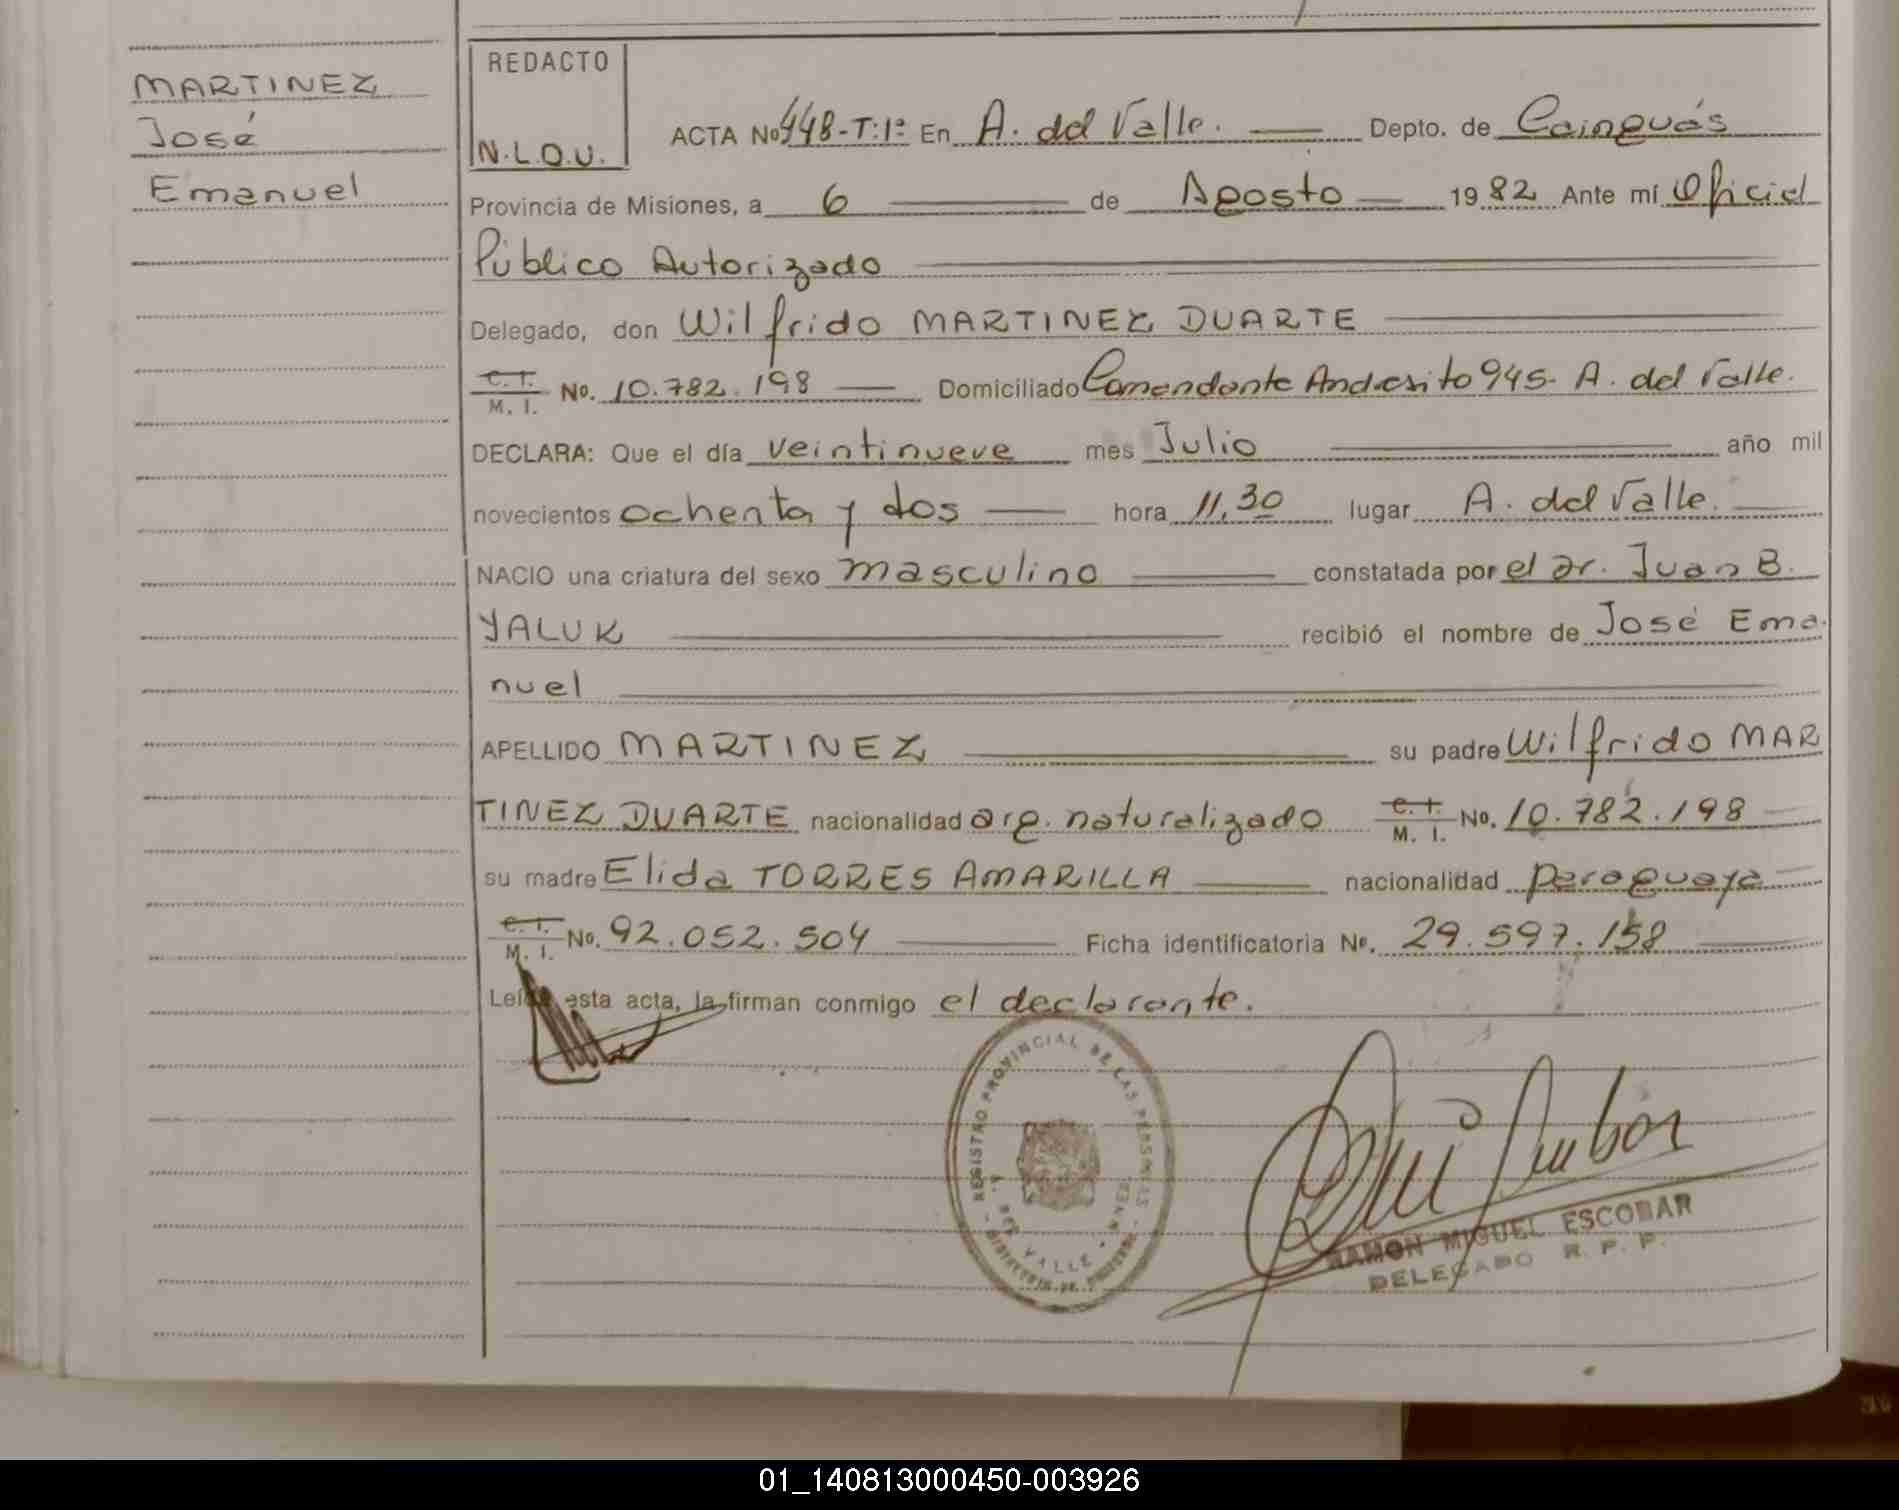 MARTINEZ
José
Emanuel
REDACTO
N.L.O.U.
ACTA Nº 448-T:1º En A. del Valle. Depto. de Cainguás
Provincia de Misiones, a 6 de Agosto 1982 Ante mí Oficial
Público Autorizado
Delegado, don Wilfrido MARTINEZ DUARTE
C. I. M. I. No. 10.782.198 Domiciliado Comandante Andresito 945- A. del Valle.
DECLARA: Que el día veintinueve mes Julio año mil
novecientos ochenta y dos hora 11,30 lugar A. del Valle.
NACIO una criatura del sexo masculino constatada por el Dr. Juan B.
YALUK recibió el nombre de José Ema
nuel
APELLIDO MARTINEZ su padre Wilfrido MAR
TINEZ DUARTE nacionalidad arg. naturalizado C. I. M. I. No. 10.782.198
su madre Elida TORRES AMARILLA nacionalidad paraguaya
C. I. M. I. No. 92.052.504 Ficha identificatoria Nº. 29.597.158
Leída esta acta, la firman conmigo el declarante.
REGISTRO PROVINCIAL DE LAS PERSONAS
DEL VALLE
RAMON MIGUEL ESCOBAR
DELEGADO R. P. P.
01_140813000450-003926